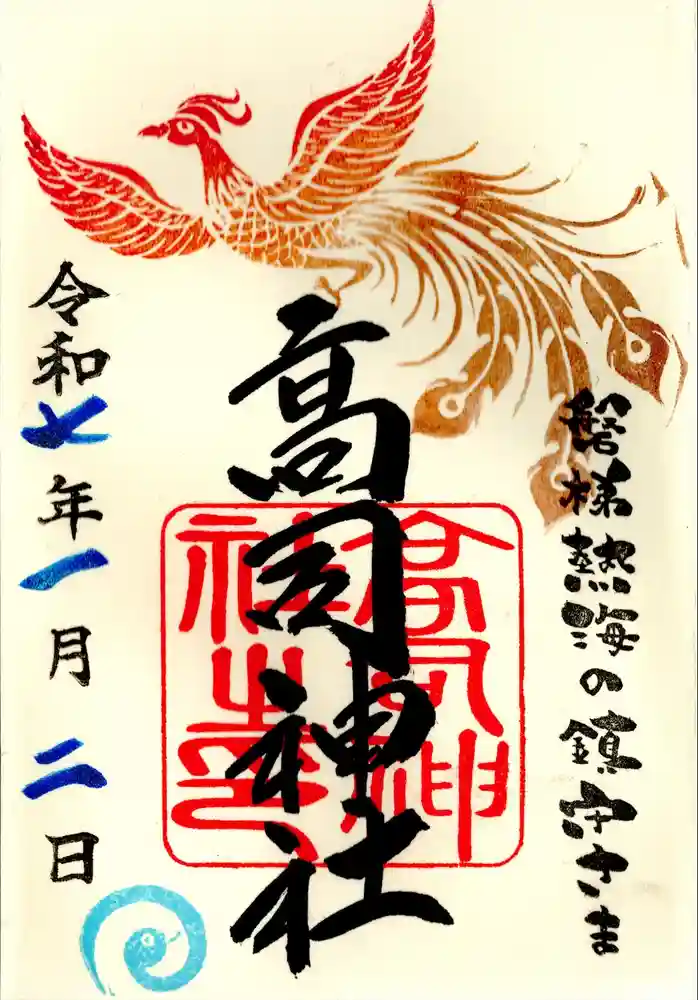 磐梯熱海の鎮守さま
高司神社
高司神社之印
令和七年一月二日